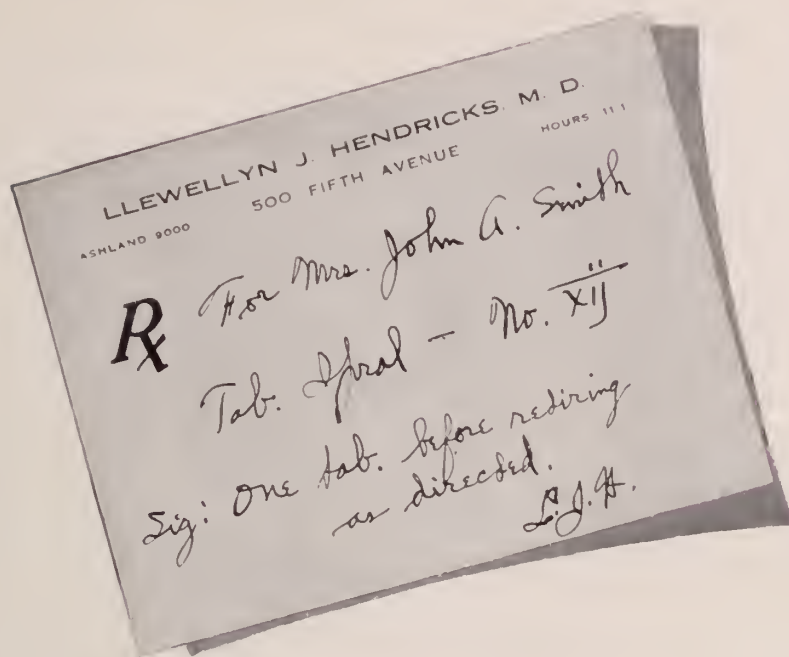 LLEWELLYN J. HENDRICKS. M. D.
ASHLAND 9000 500 FIFTH AVENUE HOURS 11 1
Rx For Mrs. John A. Smith
Tab. Ipral — No. XIJ
Sig: One tab. before retiring
as directed.
L.J.H.